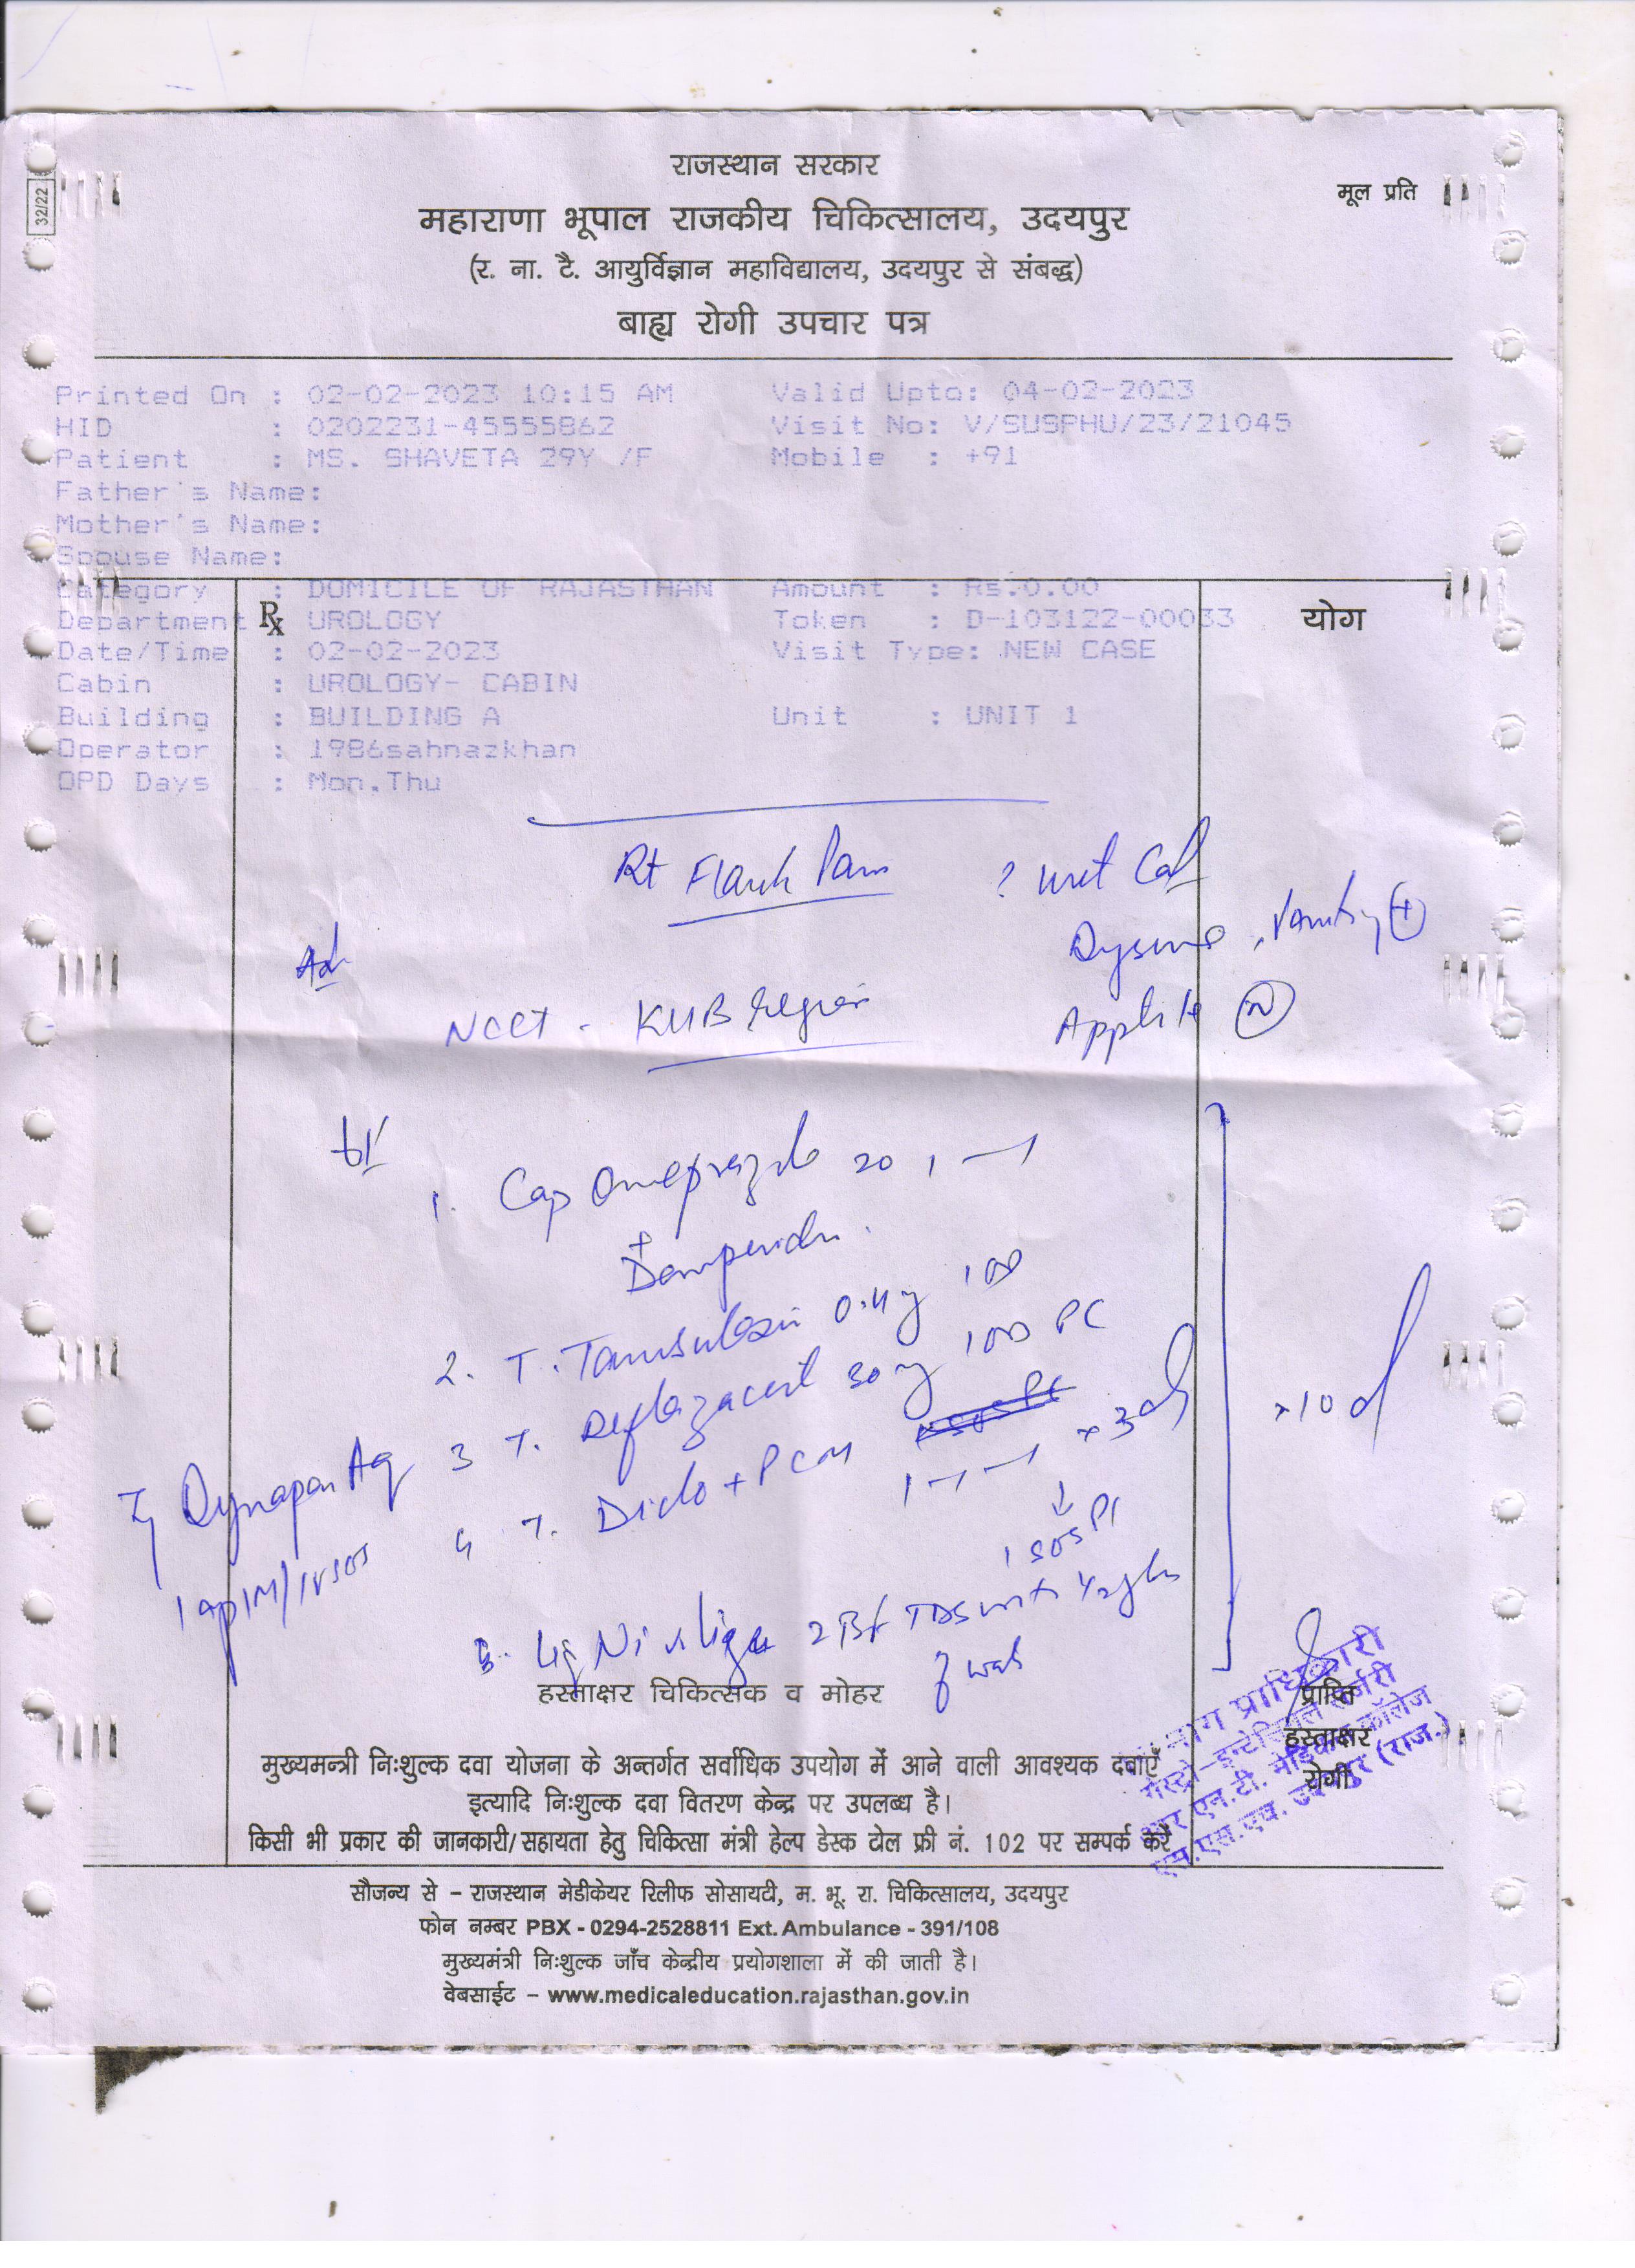 32/22
राजस्थान सरकार
मूल प्रति
महाराणा भूपाल राजकीय चिकित्सालय, उदयपुर
(र. ना. टै. आयुर्विज्ञान महाविद्यालय, उदयपुर से संबद्ध)
बाह्य रोगी उपचार पत्र
Printed On : 02-02-2023 10:15 AM Valid Upto: 04-02-2023
HID : 0202231-45555862 Visit No: V/SUSPHU/23/21045
Patient : MS. SHAVETA 29Y /F Mobile : +91
Father's Name:
Mother's Name:
Spouse Name:
Category : DOMICILE OF RAJASTHAN Amount : Rs.0.00
Department : UROLOGY Token : D-103122-00033
Rx
योग
Date/Time : 02-02-2023 Visit Type: NEW CASE
Cabin : UROLOGY- CABIN
Building : BUILDING A Unit : UNIT 1
Operator : 1986sahnazkhan
OPD Days : Mon,Thu
Rt Flank Pain ? Uret Cal
Dysuria, Vomiting (+)
Adv
NCCT - KUB region
Appetite (N)
1. Cap Omeprazole 20 1 — 1
+
Domperidon
2. T. Tamsulosin 0.4mg 1 OD
3 T. Deflazacort 30mg 1 OD PC
4 T. Diclo + PCM 1 - 1 - 1 x 3d
↓
1 SOS PC
x 10 d
Inj Dynapar Aq
1 amp IM/IV SOS
5. Liq 2 TSF TDS with 1/2 glass
of water
हस्ताक्षर चिकित्सक व मोहर
प्राप्ति
हस्ताक्षर
रोगी
मुख्यमन्त्री निःशुल्क दवा योजना के अन्तर्गत सर्वाधिक उपयोग में आने वाली आवश्यक दवाएँ
इत्यादि निःशुल्क दवा वितरण केन्द्र पर उपलब्ध है।
किसी भी प्रकार की जानकारी/सहायता हेतु चिकित्सा मंत्री हेल्प डेस्क टोल फ्री नं. 102 पर सम्पर्क करें
सौजन्य से – राजस्थान मेडीकेयर रिलीफ सोसायटी, म. भू. रा. चिकित्सालय, उदयपुर
फोन नम्बर PBX - 0294-2528811 Ext. Ambulance - 391/108
मुख्यमंत्री निःशुल्क जाँच केन्द्रीय प्रयोगशाला में की जाती है।
वेबसाईट – www.medicaleducation.rajasthan.gov.in